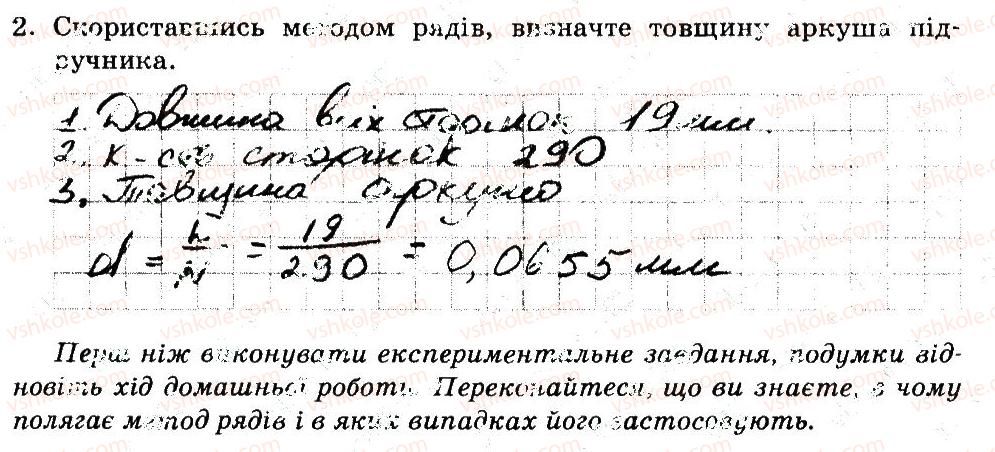 2. Скориставшись методом рядів, визначте товщину аркуша під-
ручника.
1. Довжина всіх сторінок 19 мм.
2. К-сть сторінок 290
3. Товщина аркуша
d = L/n = 19/290 = 0,0655 мм
Перш ніж виконувати експериментальне завдання, подумки від-
новіть хід домашньої роботи. Переконайтеся, що ви знаєте, в чому
полягає метод рядів і в яких випадках його застосовують.